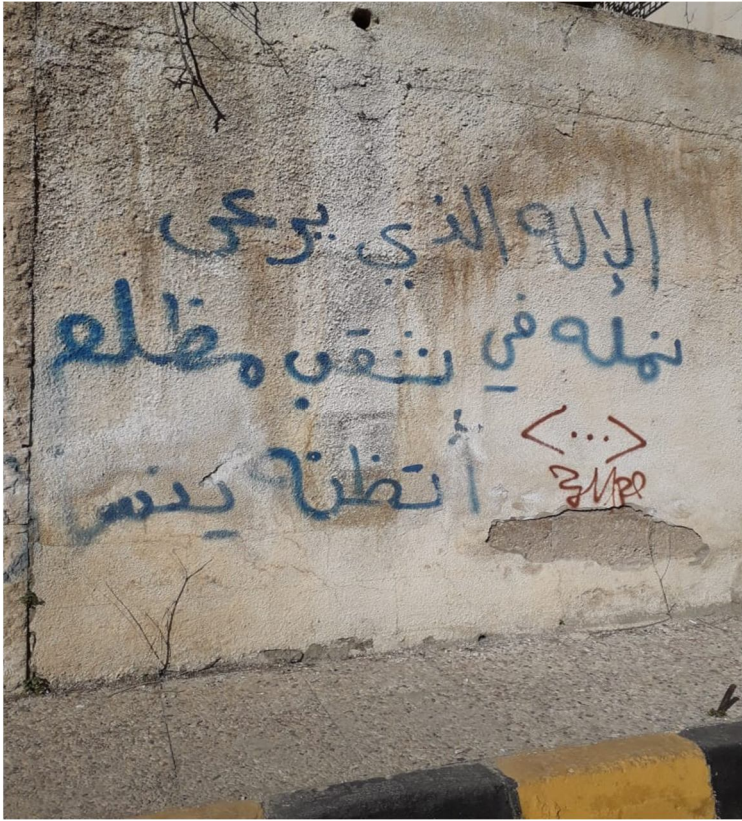 الإله الذي يرعى
نمله في ثقب مظلم
أتظنه ينس
<...>